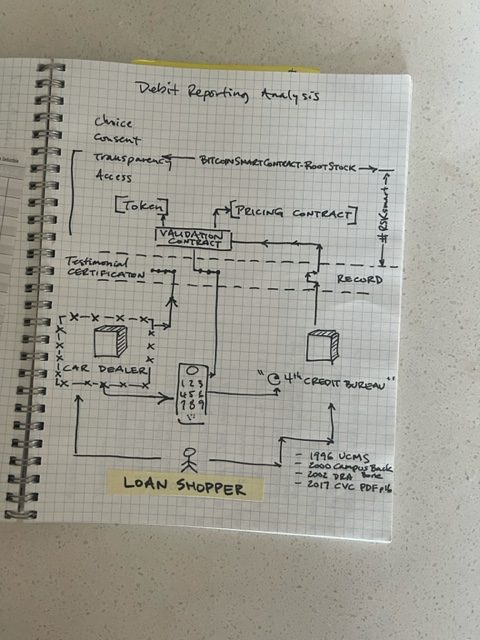 Debit Reporting Analysis
Choice
Consent
Transparency
BITCOIN SMART CONTRACT-ROOTSTOCK
Access
#RSKsmart
[Token]
[PRICING CONTRACT]
VALIDATION
CONTRACT
Testimonial
CERTIFICATON
RECORD
CAR DEALER
1 2 3
4 5 6
7 8 9
"@ 4th CREDIT BUREAU"
LOAN SHOPPER
- 1996 UCMS
- 2000 Campus Back
- 2002 DRA Bank
- 2017 CVC PDF p16